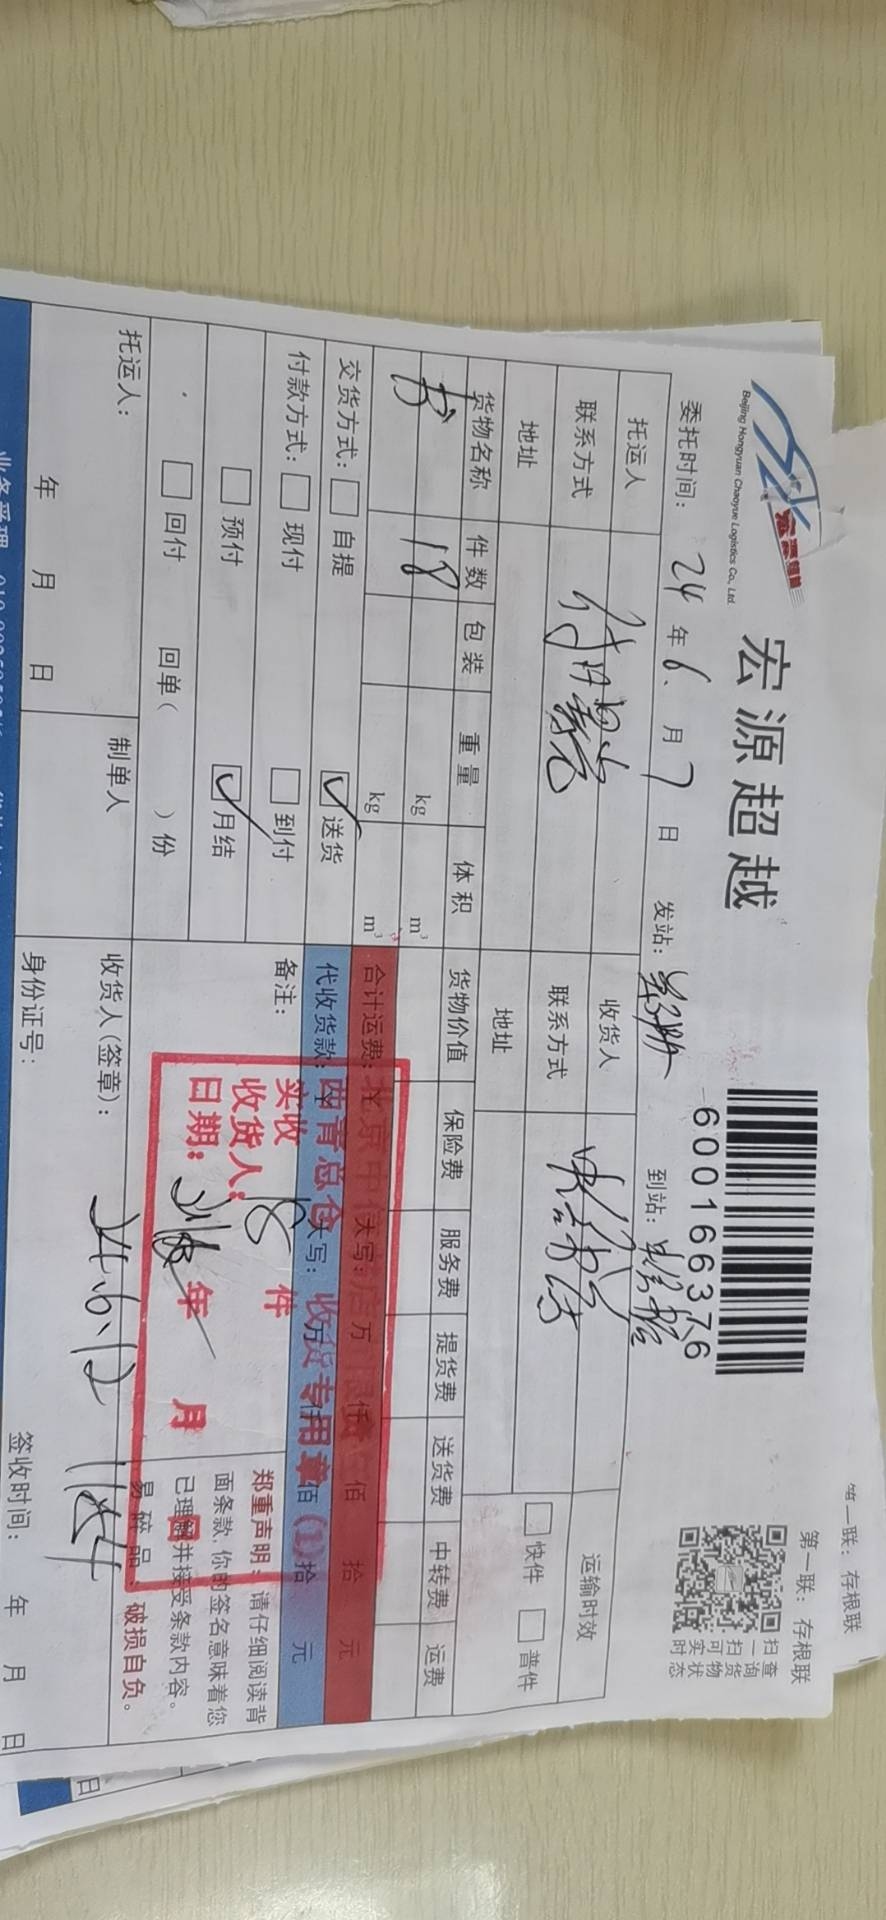 第一联：存根联
第一联：存根联
Beijing Hongyuan Chaoyue Logistics Co., Ltd.
宏源超越
6001663776
扫一扫可实时
查询货物状态
委托时间：24年6月7日 发站： 到站：
托运人 收货人 运输时效
联系方式 联系方式 快件 普件
地址 地址
货物名称 件数 包装 重量 体积 货物价值 保险费 服务费 提货费 送货费 中转费 运费
书 18 kg m³
kg m³
交货方式： 自提 送货 合计运费： 大写： 万 仟 佰 拾 元
付款方式： 现付 到付 代收货款： 大写： 万 仟 佰 拾 元
预付 月结 备注：
回付 回单（ ）份
西青总仓 收货专用章(1)
实收 18 件
收货人：
日期： 年 月 日
郑重声明：请仔细阅读背
面条款，你的签名意味着您
已理解并接受条款内容。
易碎品：破损自负。
托运人： 制单人 收货人(签章)： 24.6.12
年 月 日 身份证号： 签收时间： 年 月 日
业务受理